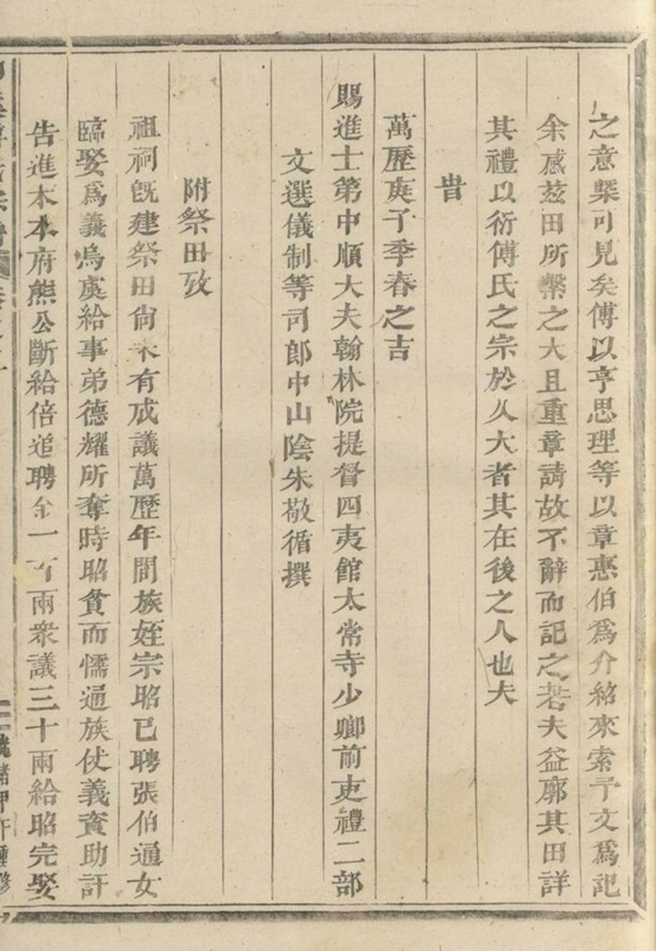 之意槩可見矣傅以亨思理等以章惠伯爲介紹來索予文爲記
余感玆田所繫之大且重章請故不辭而記之若夫益廓其田詳
其禮以衍傅氏之宗於久大者其在後之人也夫
旹
萬歷庚子季春之吉
賜進士第中順大夫翰林院提督四夷館太常寺少卿前吏禮二部
文選儀制等司郎中山陰朱敬循撰
附祭田攷
祖祠旣建祭田尙未有成議萬歷年間族姪宗昭已聘張伯通女
臨娶爲義烏虞給事弟德耀所奪時昭貧而懦通族仗義資助訐
告進本本府熊公斷給倍追聘金一百兩衆議三十兩給昭完娶